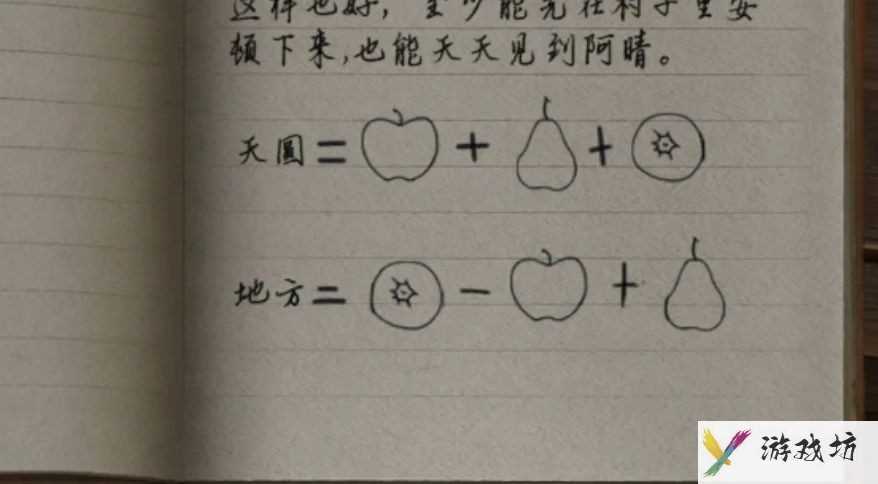 这样也好，至少能先在村子里安
顿下来,也能天天见到阿晴。
天圆=++
地方=-+
游戏坊